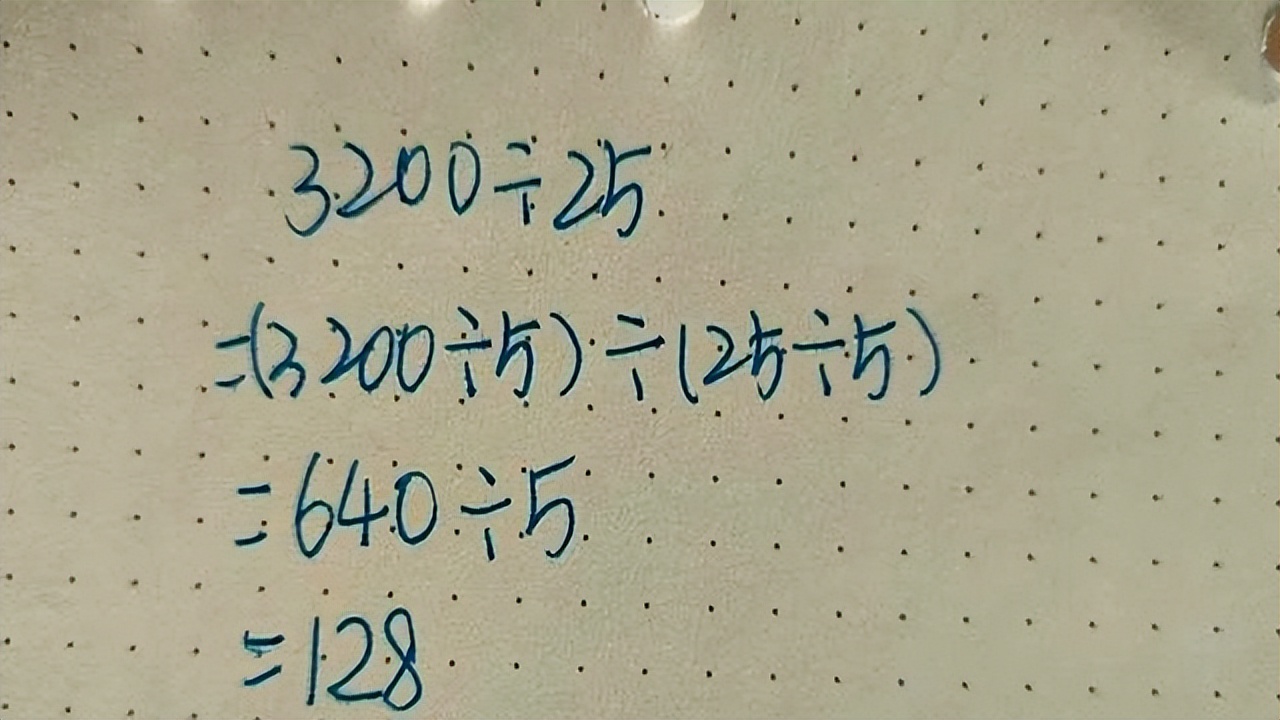 3200÷25
=(3200÷5)÷(25÷5)
=640÷5
=128